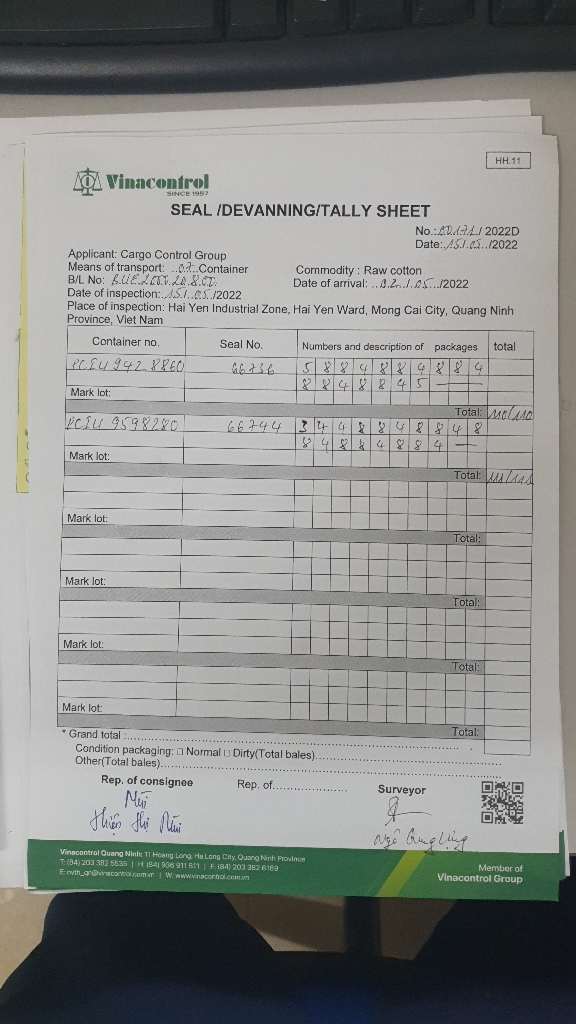 HH.11
Vinacontrol
SINCE 1957
SEAL /DEVANNING/TALLY SHEET
No.: / 2022D
Date: 15/.05../2022
Applicant: Cargo Control Group
Means of transport: ..02..Container
Commodity : Raw cotton
B/L No:
Date of arrival: ..02../.05.../2022
Date of inspection: 15/..05/2022
Place of inspection: Hai Yen Industrial Zone, Hai Yen Ward, Mong Cai City, Quang Ninh
Province, Viet Nam
Container no. Seal No. Numbers and description of packages total
PCIU 942 8860 66736 5 8 8 4 8 8 4 8 8 4
8 8 4 8 8 4 5 —
Mark lot:
Total: 110/110
PCIU 9598280 66744 3 4 4 8 8 4 8 8 4 8
8 4 8 8 4 8 8 4 —
Mark lot:
Total: 111/111
Mark lot:
Total:
Mark lot:
Total:
Mark lot:
Total:
Mark lot:
Total:
* Grand total :
Condition packaging: □ Normal □ Dirty(Total bales)
Other(Total bales)
Rep. of consignee Rep. of Surveyor
Vinacontrol Quang Ninh: 11 Hoang Long, Ha Long City, Quang Ninh Province
T: (84) 203 382 5536 | H: (84) 936 911 811 | F: (84) 203 382 6169
E: nvth_qn@vinacontrol.com.vn | W: www.vinacontrol.com.vn
Member of
Vinacontrol Group